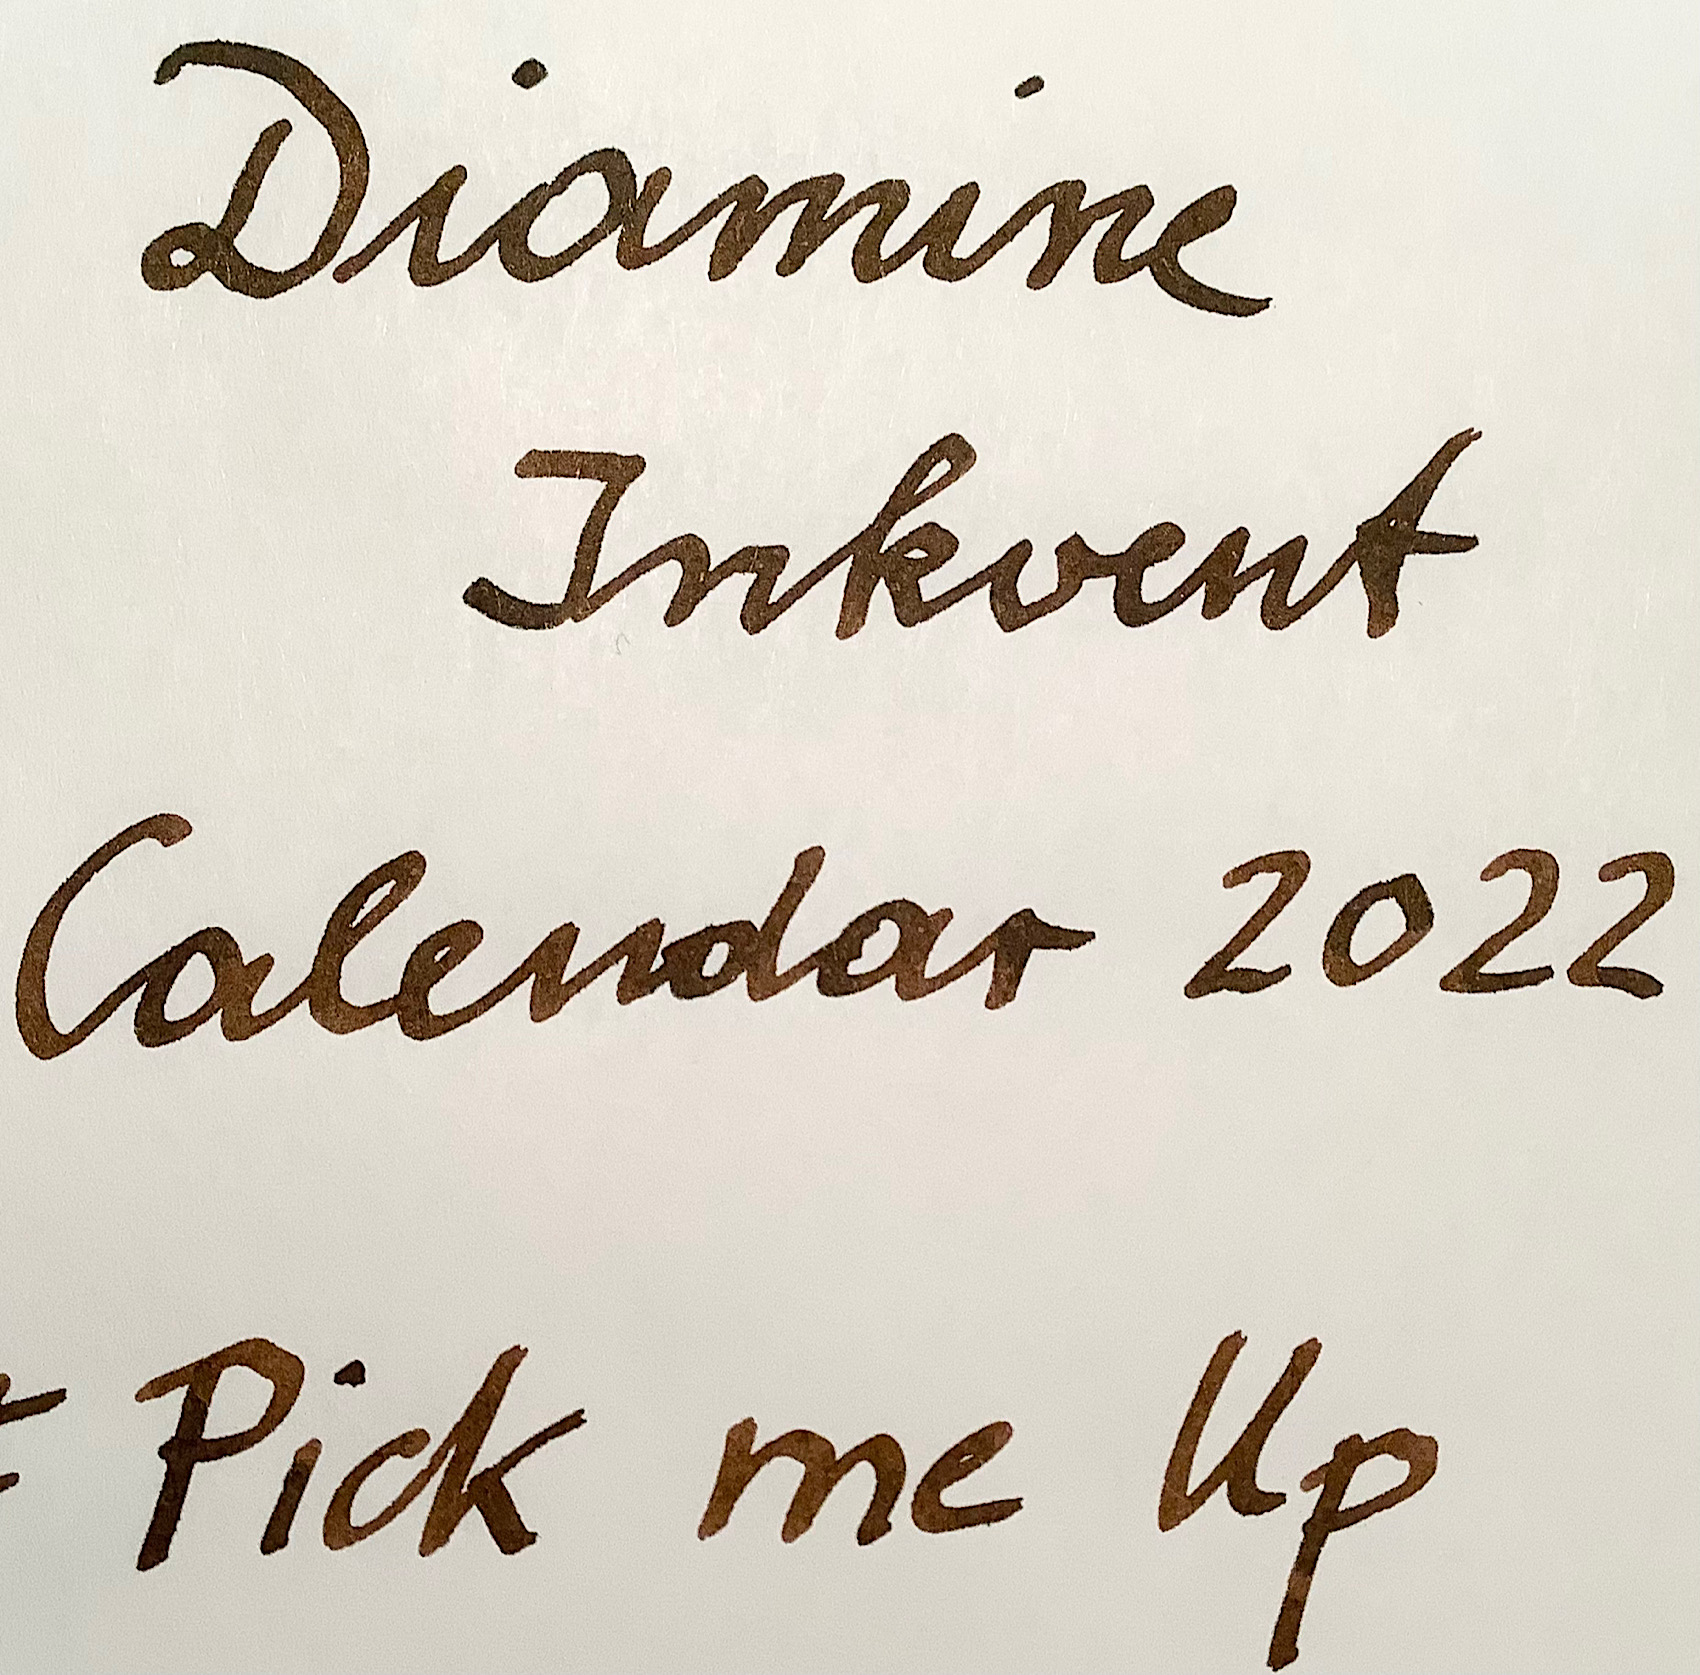 Diamine
Inkvent
Calendar 2022
Pick me Up